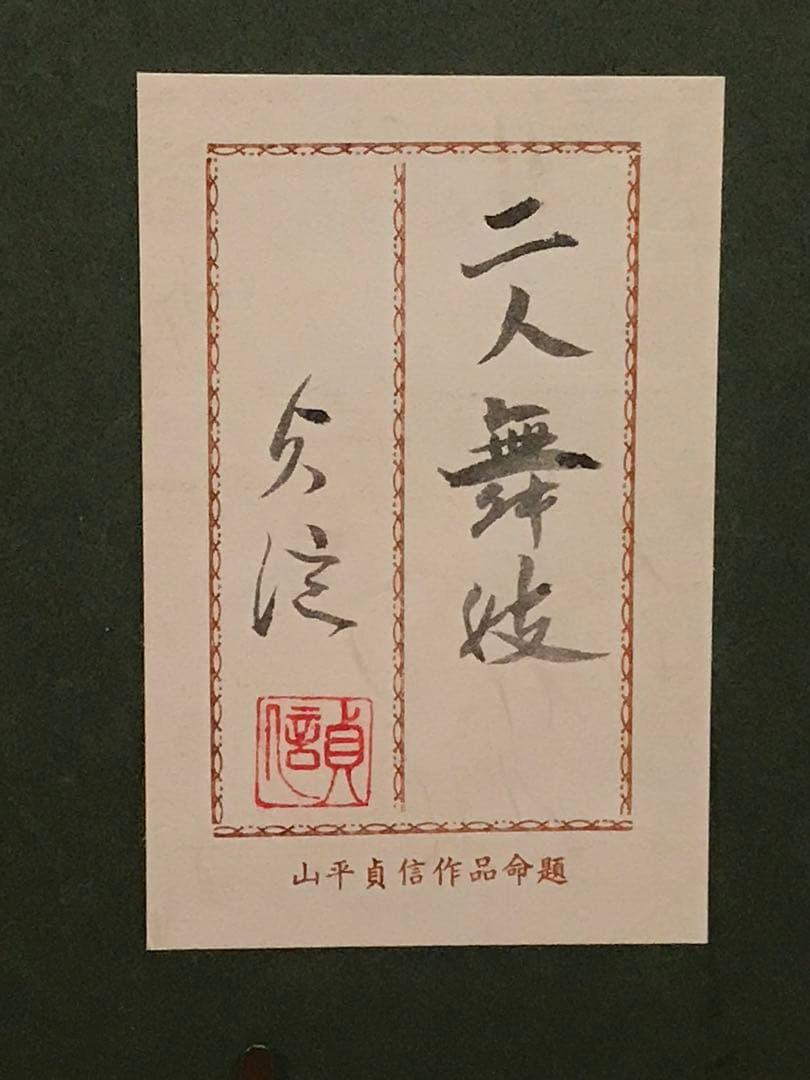 二人舞妓
貞信
貞信
山平貞信作品命題